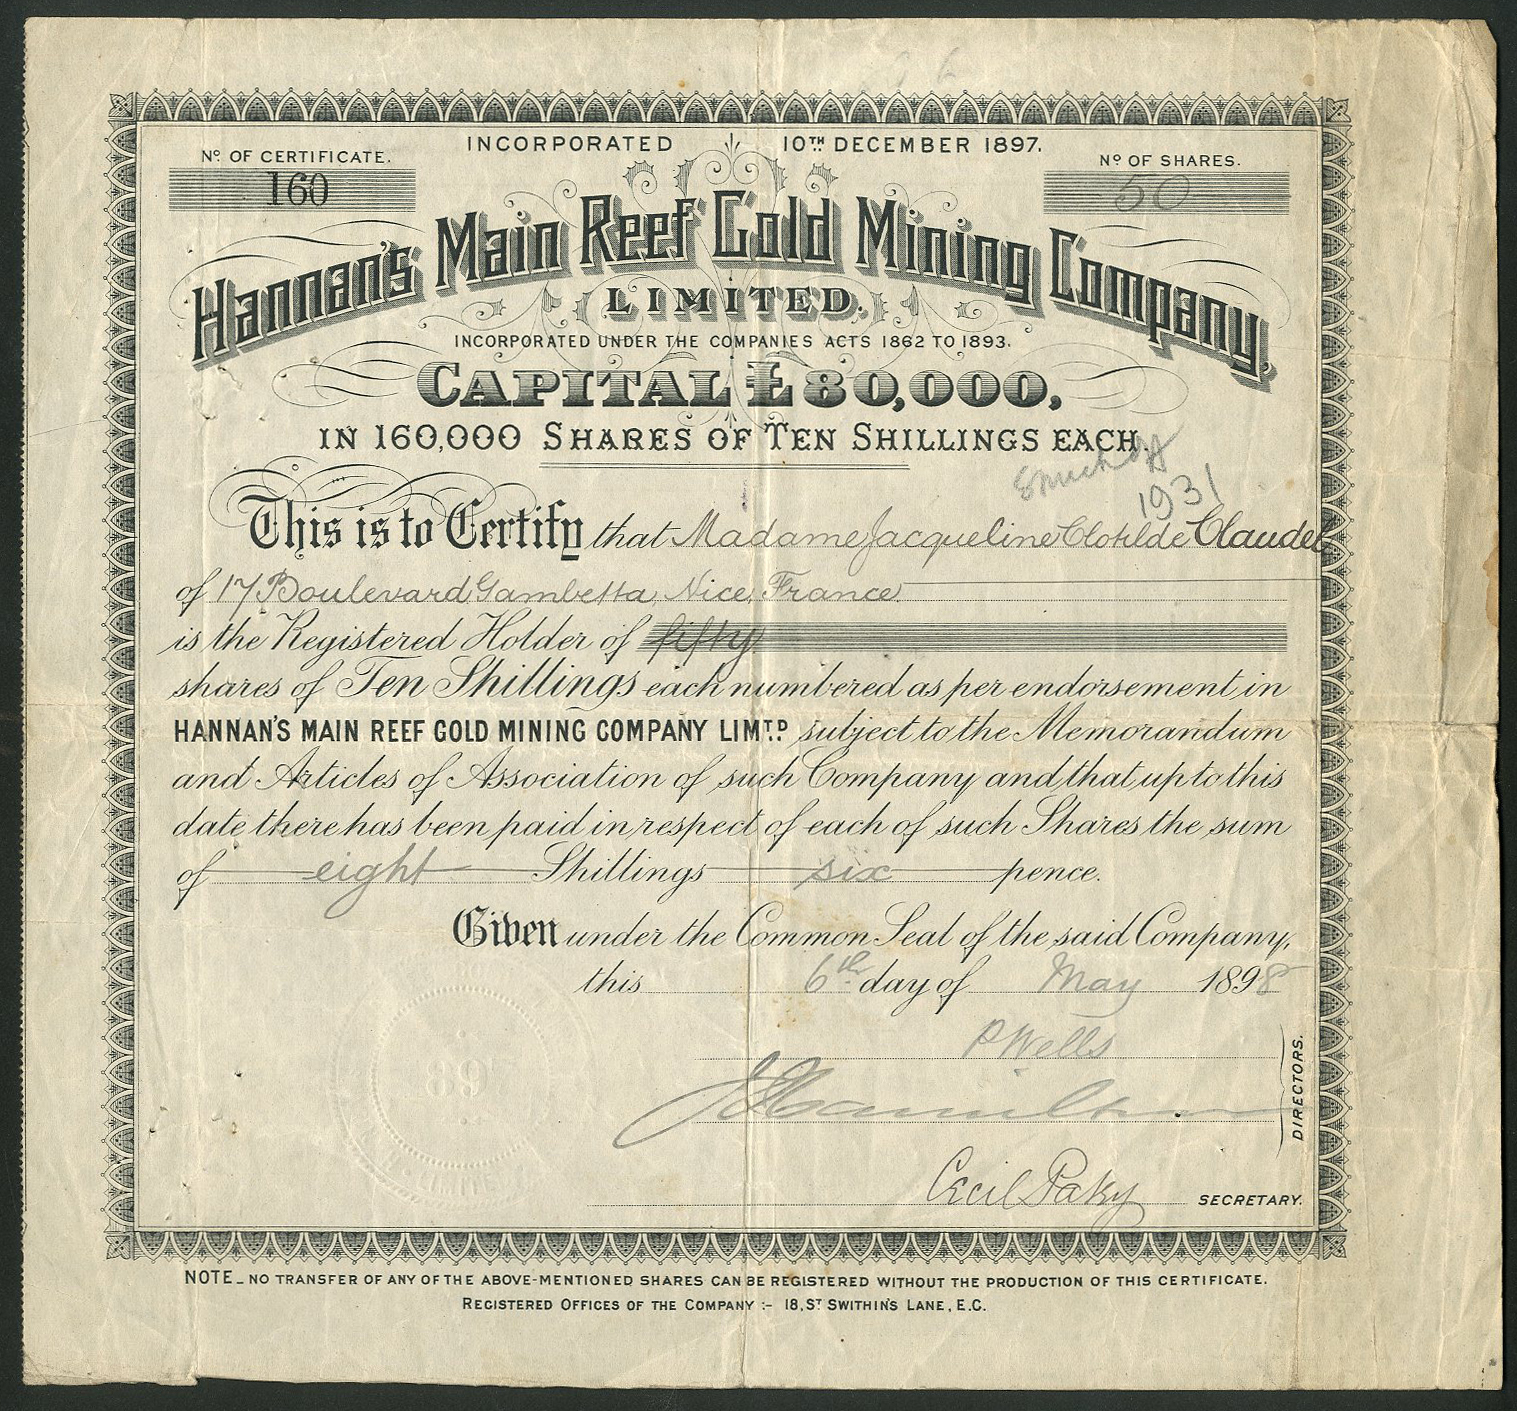 INCORPORATED 10TH DECEMBER 1897.
No OF CERTIFICATE.
160
No OF SHARES.
50
Hannan's Main Reef Gold Mining Company,
LIMITED.
INCORPORATED UNDER THE COMPANIES ACTS 1862 TO 1893.
CAPITAL £80,000,
IN 160,000 SHARES OF TEN SHILLINGS EACH.
Struck off
1931
This is to Certify that Madame Jacqueline Clotilde Claudel
of 17 Boulevard Gambetta, Nice, France.
is the Registered Holder of fifty
shares of Ten Shillings each numbered as per endorsement in
HANNAN'S MAIN REEF GOLD MINING COMPANY LIMTD. subject to the Memorandum
and Articles of Association of such Company and that up to this
date there has been paid in respect of each of such Shares the sum
of eight Shillings six pence.
Given under the Common Seal of the said Company,
this 6th day of May 1898
P Wells
Hamilton
DIRECTORS.
89
LIMITED
Cecil Paky SECRETARY.
NOTE_ NO TRANSFER OF ANY OF THE ABOVE-MENTIONED SHARES CAN BE REGISTERED WITHOUT THE PRODUCTION OF THIS CERTIFICATE.
REGISTERED OFFICES OF THE COMPANY :- 18, ST SWITHIN'S LANE, E.C.